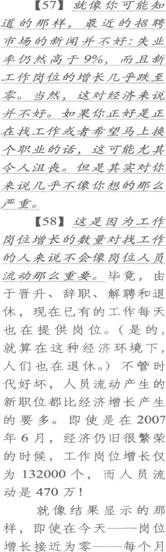 【57】就像你可能知
道的那样，最近的招聘
市场的新闻并不好：失业
率仍然高于9%，而且新
工作岗位的增长几乎跌至
零。当然，这对经济来说
并不好。如果你正好是正
在找工作或者希望马上换
个职业的话，这可能尤其
令人沮丧。但是其实对你
来说几乎不像你想的那么
严重。
【58】这是因为工作
岗位增长的数量对找工作
的人来说不会像岗位人员
流动那么重要。毕竟，由
于晋升、辞职、解聘和退
休，现在已有的工作每天
也在提供岗位。（是的，
就算在这种经济环境下，
人们也在退休。）不管时
代好坏，人员流动产生的
新职位都比经济增长产生
的要多。即使是在2007
年6月，经济仍旧很繁荣
的时候，工作岗位增长仅
为132000个，而人员流
动是470万！
就像结果显示的那
样，即使在今天——岗位
增长接近为零——每个月